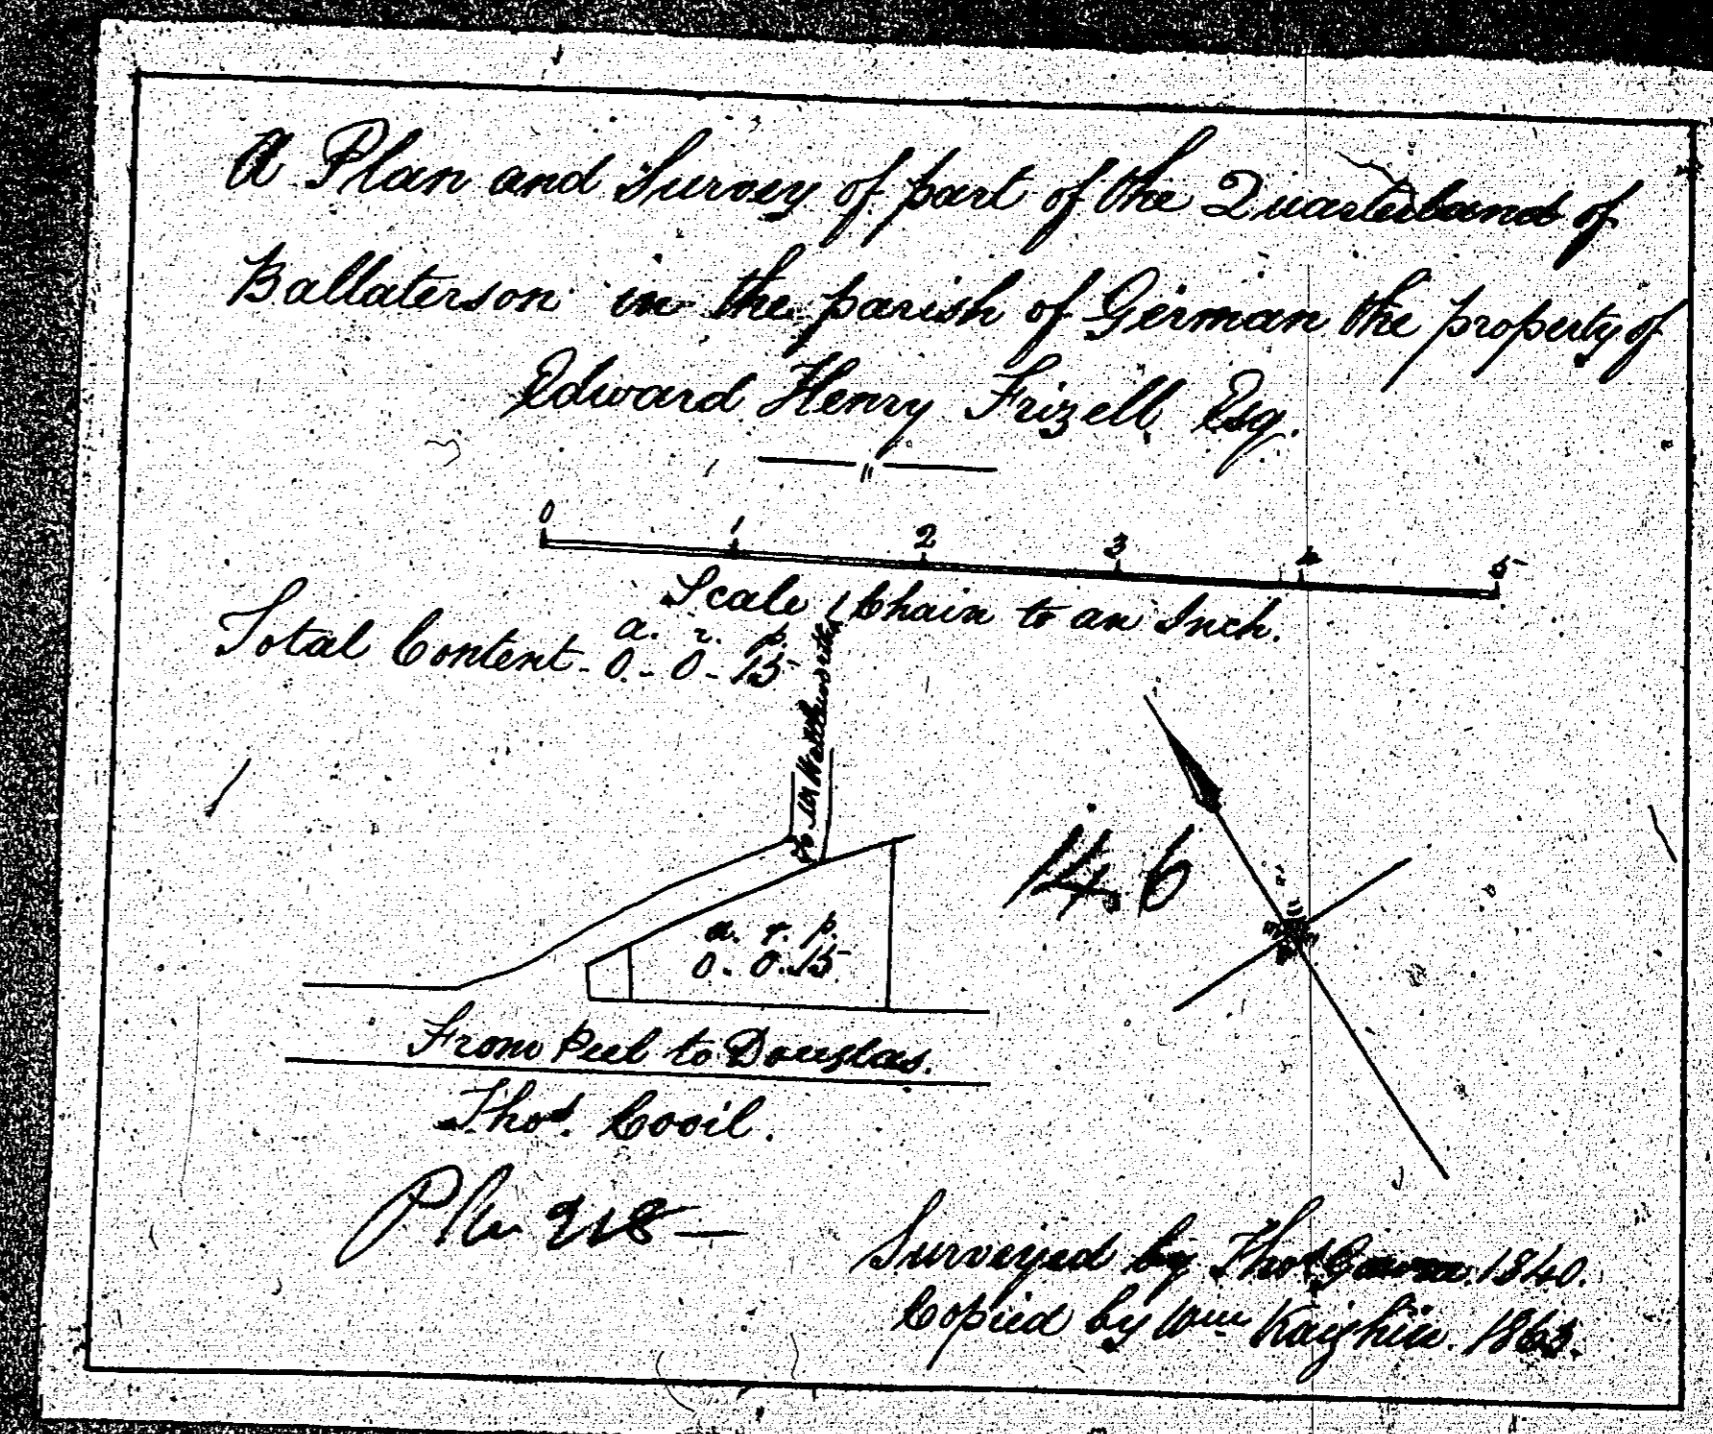 A Plan and Survey of part of the Quarterland of
Ballaterson in the parish of German the property of
Edward Henry Frizell Esq.
0 1 2 3 4 5
Scale 1 Chain to an Inch.
a. r. p.
Total Content - 0 - 0 - 15
To
146
a. r. p.
0 - 0 - 15
From Peel to Douglas.
Thos. Cooil.
Surveyed by Thos 1840.
Copied by Wm 1863.